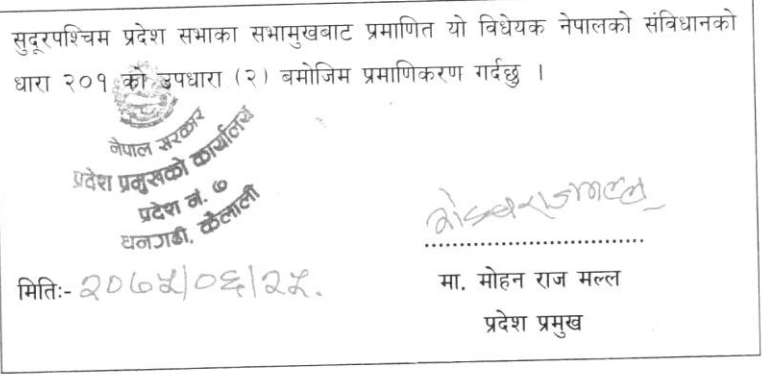 सुदूरपश्चिम प्रदेश सभाका सभामुखबाट प्रमाणित यो विधेयक नेपालको संविधानको
धारा २०१ को उपधारा (२) बमोजिम प्रमाणिकरण गर्दछु ।
नेपाल सरकार
प्रदेश प्रमुखको कार्यालय
प्रदेश नं. ७
धनगढी, कैलाली
मिति:- २०७५/०६/२५.
मा. मोहन राज मल्ल
प्रदेश प्रमुख